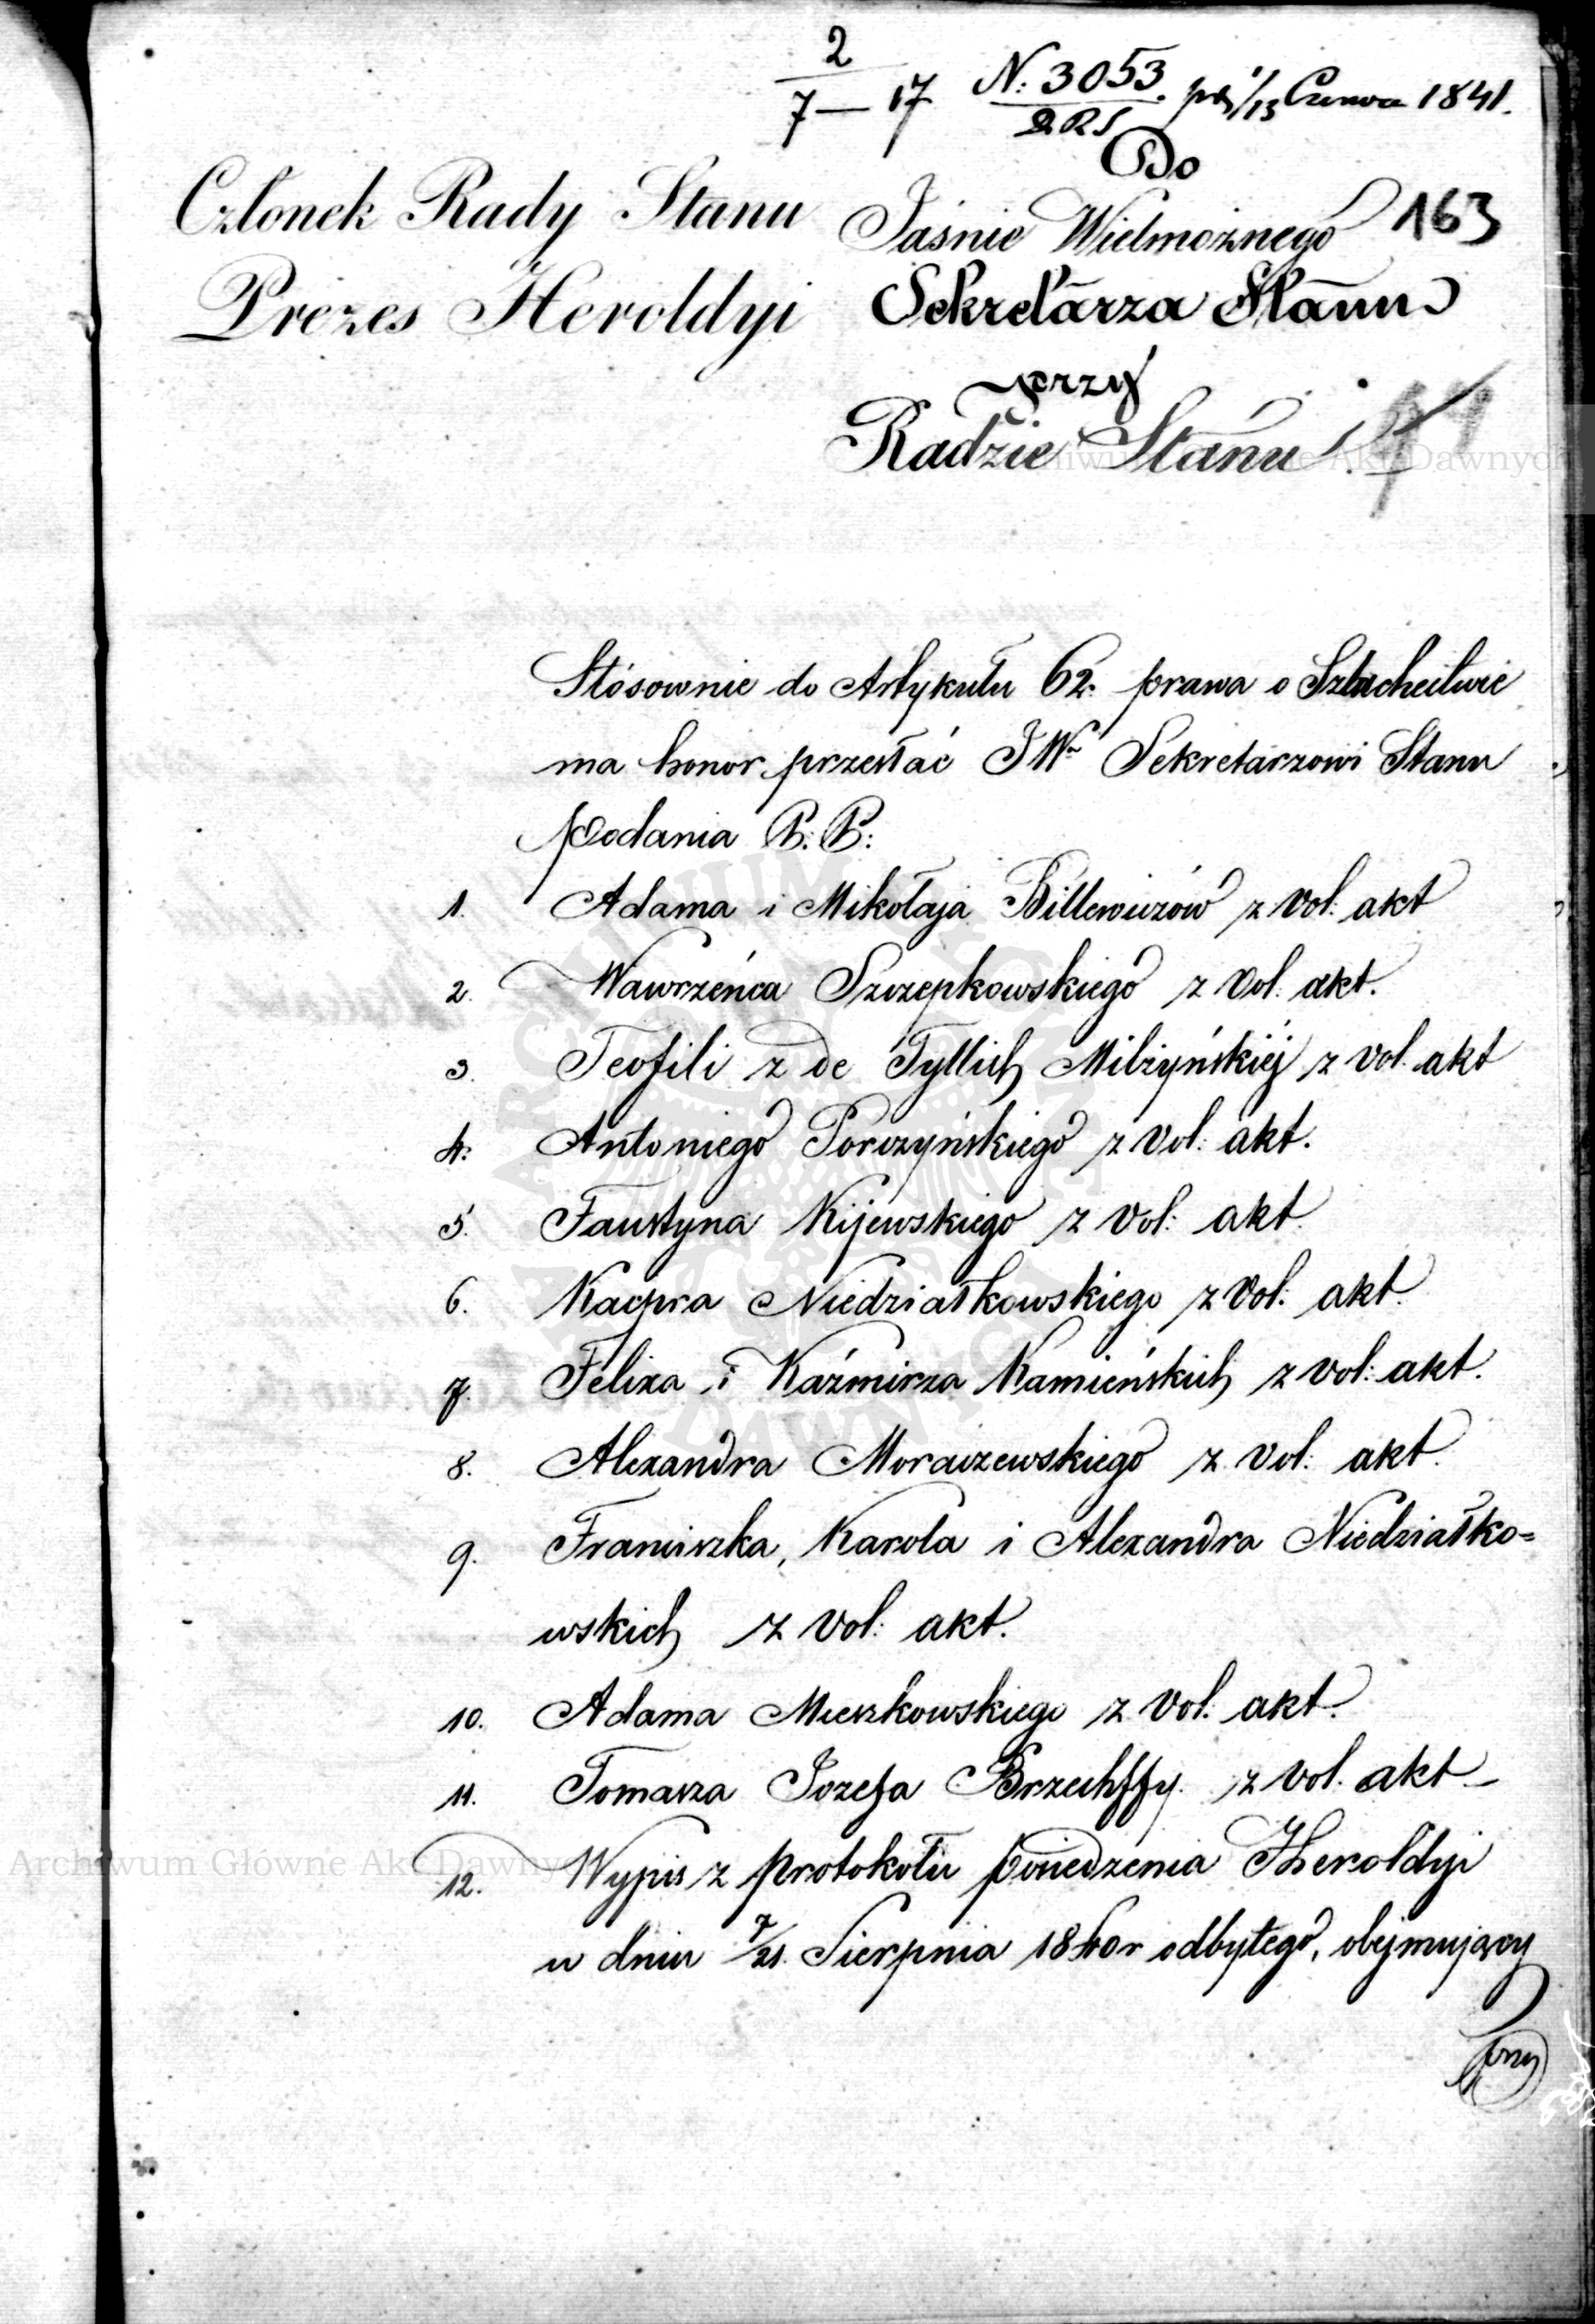 2
7 — 17
N: 3053. 1/13 Czerwca 1841.
DRS
Do
Członek Rady Stanu
Jaśnie Wielmożnego
163
Prezes Heroldyi
Sekretarza Stanu
przy
Radzie Stanu
Stósownie do Artykułu 62. prawa o Szlachectwie
ma honor przesłać JW Sekretarzowi Stanu
podania P. P:
1. Adama i Mikołaja Billewiczów z vol: akt
2. Wawrzeńca Szczepkowskiego z vol: akt.
3. Teofili z de Tyllich Milżyńskiéj z vol. akt
4. Antoniego Porczyńskiego z vol: akt.
5. Faustyna Kijewskiego z vol: akt.
6. Kacpra Niedziałkowskiego z vol: akt.
7. Felixa i Kaźmirza Kamieńskich z vol: akt.
8. Alexandra Moraczewskiego z vol: akt.
9. Franciszka, Karola i Alexandra Niedziałko=
wskich z vol: akt.
10. Adama Mieszkowskiego z vol: akt.
11. Tomasza Jozefa Brzechffy. z vol. akt
12. Wypis z protokołu posiedzenia Heroldyi
w dniu 7/21. Sierpnia 1840r odbytego, obejmujący
Archiwum Główne Akt Dawnych
Archiwum Główne Akt Dawnych
ARCHIWUM GŁÓWNE AKT DAWNYCH